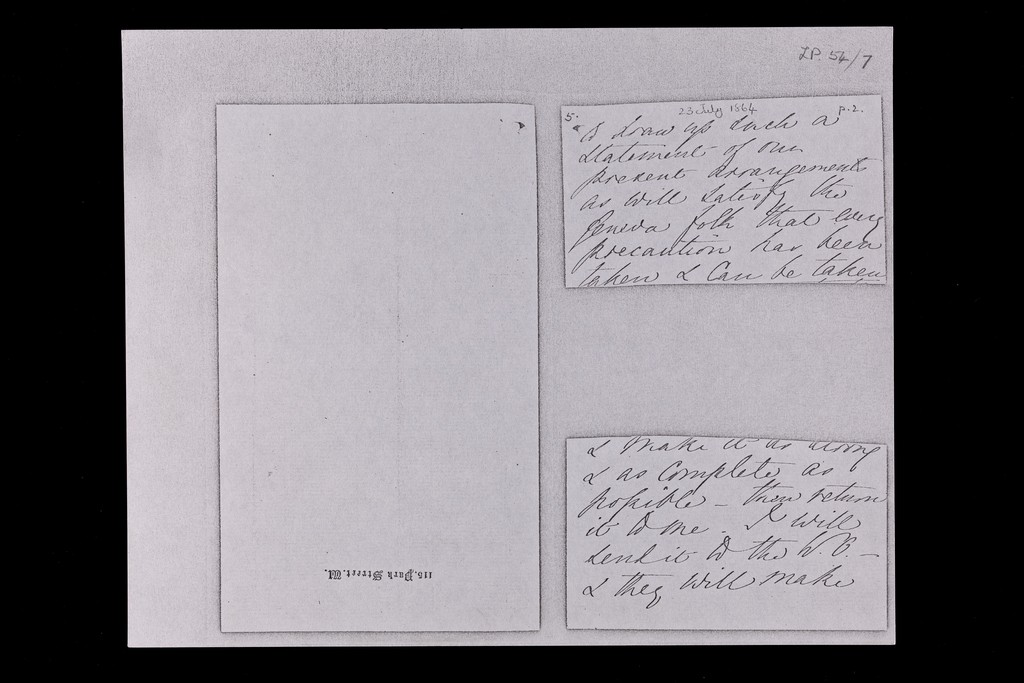 LP. 54/7
115, Park Street. W.
5.
23 July 1864
p. 2.
to draw up such a
statement of our
present arrangements
as will satisfy the
Geneva folk that every
precaution has been
taken & can be taken
& make it as strong
& as complete as
possible – then return
it to me. I will
send it to the W.O. –
& they will make